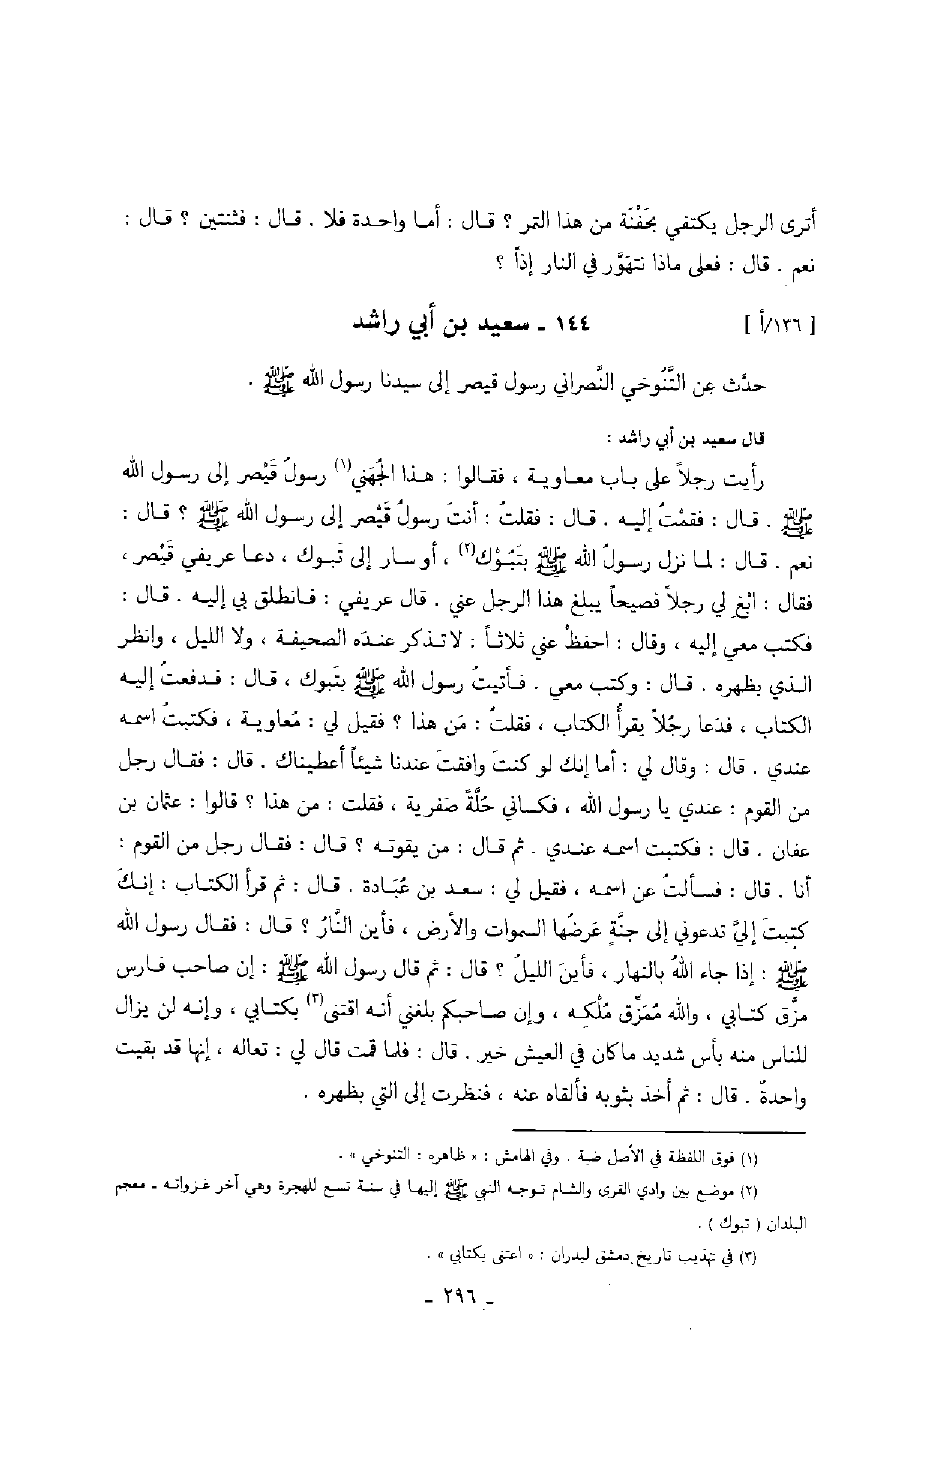 أترى الرجل يكتفي بحَفْنَة من هذا التمر ؟ قـال : أمـا واحـدة فلا . قـال : فثنتين ؟ قـال :
نعم . قال : فعلى ماذا نتهوَّر في النار إذاً ؟
[ ١٣٦/أ ] ١٤٤ ـ سعيد بن أبي راشد
حدَّث عن التَّنُوخي النَّصراني رسول قيصر إلى سيدنا رسول الله ﷺ .
قال سعيد بن أبي راشد :
رأيت رجلاً على باب معـاويـة ، فقـالوا : هـذا الجُهَني(١) رسولُ قَيْصر إلى رسـول الله
ﷺ . قـال : فقمْتُ إليـه . قـال : فقلتُ : أنتَ رسولُ قَيْصر إلى رسـول الله ﷺ ؟ قـال :
نعم . قـال : لمـا نزل رسـولُ الله ﷺ بتَبُوْك(٢) ، أو سـار إلى تَبـوك ، دعـا عريفي قَيْصر ،
فقال : ابْغِ لي رجلاً فصيحاً يبلغ هذا الرجل عني . قال عريفي : فـانطلق بي إليـه . قـال :
فكتب معي إليه ، وقال : احفظْ عني ثلاثـاً : لا تـذكر عنـدَه الصحيفـة ، ولا الليل ، وانظر
الـذي بظهره . قـال : وكتب معي . فـأتيتُ رسول الله ﷺ بتَبوك ، قـال : فـدفعتُ إليـه
الكتاب ، فدَعا رجُلاً يقرأُ الكتاب ، فقلتُ : مَن هذا ؟ فقيل لي : مُعاويـة ، فكتبتُ اسمـه
عندي . قال : وقال لي : أما إنك لو كنتَ وافقتَ عندنا شيئاً أعطيناك . قال : فقـال رجل
من القوم : عندي يا رسول الله ، فكسـاني حُلَّةً صَفرية ، فقلت : من هذا ؟ قالوا : عثمان بن
عفان . قال : فكتبت اسمـه عنـدي . ثم قـال : من يقوتـه ؟ قـال : فقـال رجل من القوم :
أنا . قال : فسـألتُ عن اسمـه ، فقيل لي : سعـد بن عُبَـادة . قـال : ثم قرأ الكتـاب : إنـكَ
كتبتَ إليَّ تدعوني إلى جنَّةٍ عَرضُها السموات والأرض ، فأين النَّارُ ؟ قـال : فقـال رسول الله
ﷺ : إذا جاء اللهُ بالنهار ، فأينَ الليلُ ؟ قال : ثم قال رسول الله ﷺ : إن صاحب فـارس
مزَّق كتـابي ، والله مُمَزِّق مُلْكـه ، وإن صـاحبكم بلغني أنـه اقتنى(٣) بكتـابي ، وإنـه لن يزال
للناس منه بأس شديد ماكان في العيش خير . قال : فلما قمت قال لي : تعاله ، إنها قد بقيت
واحدةٌ . قال : ثم أخذ بثوبه فألقاه عنه ، فنظرت إلى التي بظهره .
(١) فوق اللفظة في الأصل ضبة . وفي الهامش : « ظاهره : التنوخي » .
(٢) موضع بين وادي القرى والشام توجه النبي ﷺ إليها في سنة تسع للهجرة وهي آخر غزواته ـ معجم
البلدان ( تبوك ) .
(٣) في تهذيب تاريخ دمشق لبدران : « اعتنى بكتابي » .
ـ ٢٩٦ ـ